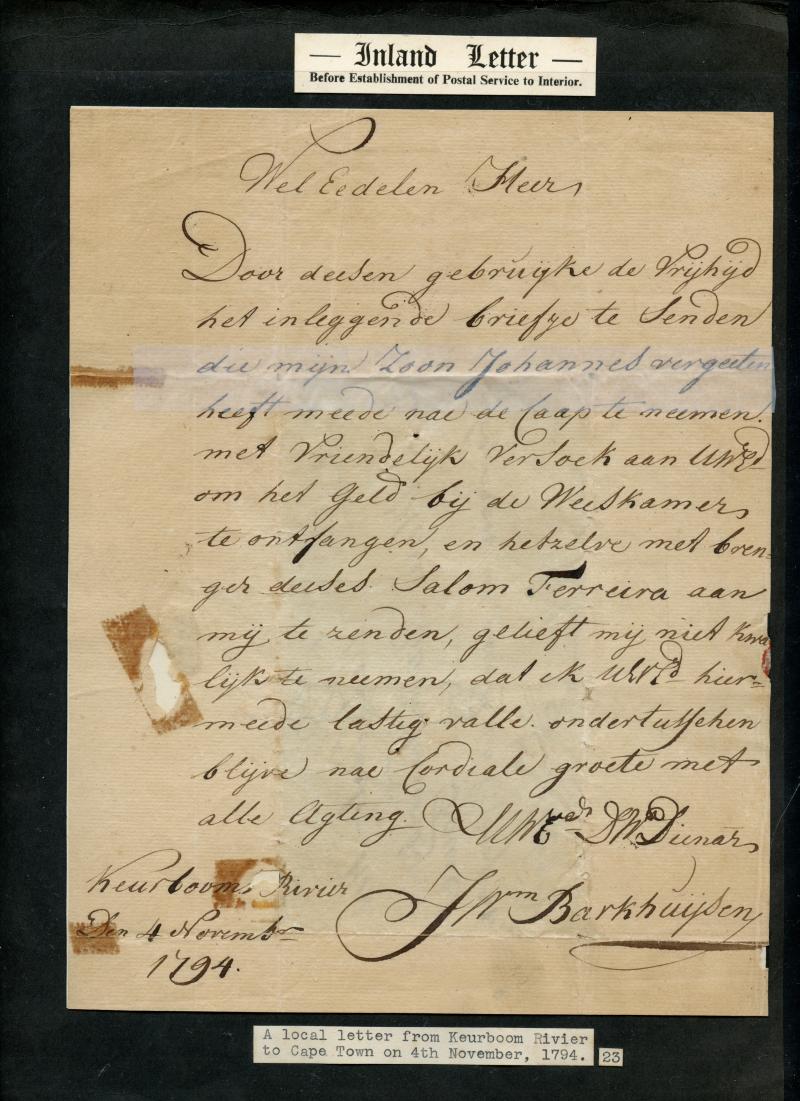 — Inland Letter —
Before Establishment of Postal Service to Interior.
Wel Eedelen Heer,
Door deesen gebruijke de Vrijhijd
het inleggende briefje te Senden
die mijn Zoon Johannes vergeeten
heeft meede nae de Caap te neemen.
met Vriendelijk Versoek aan UWEd
om het Geld bij de Weeskamer,
te ontfangen, en hetzelve met bren-
ger deeses Salom Ferreira aan
mij te zenden, gelieft mij niet kwa
lijk te neemen, dat ik UWEd hier-
meede lastig valle. ondertusschen
blijve nae Cordiale groete met
alle Agting. UWE DW Dienar,
Keurbooms Rivier
Den 4 Novembr
1794.
JWm Barkhuijsen
A local letter from Keurboom Rivier
to Cape Town on 4th November, 1794.
23